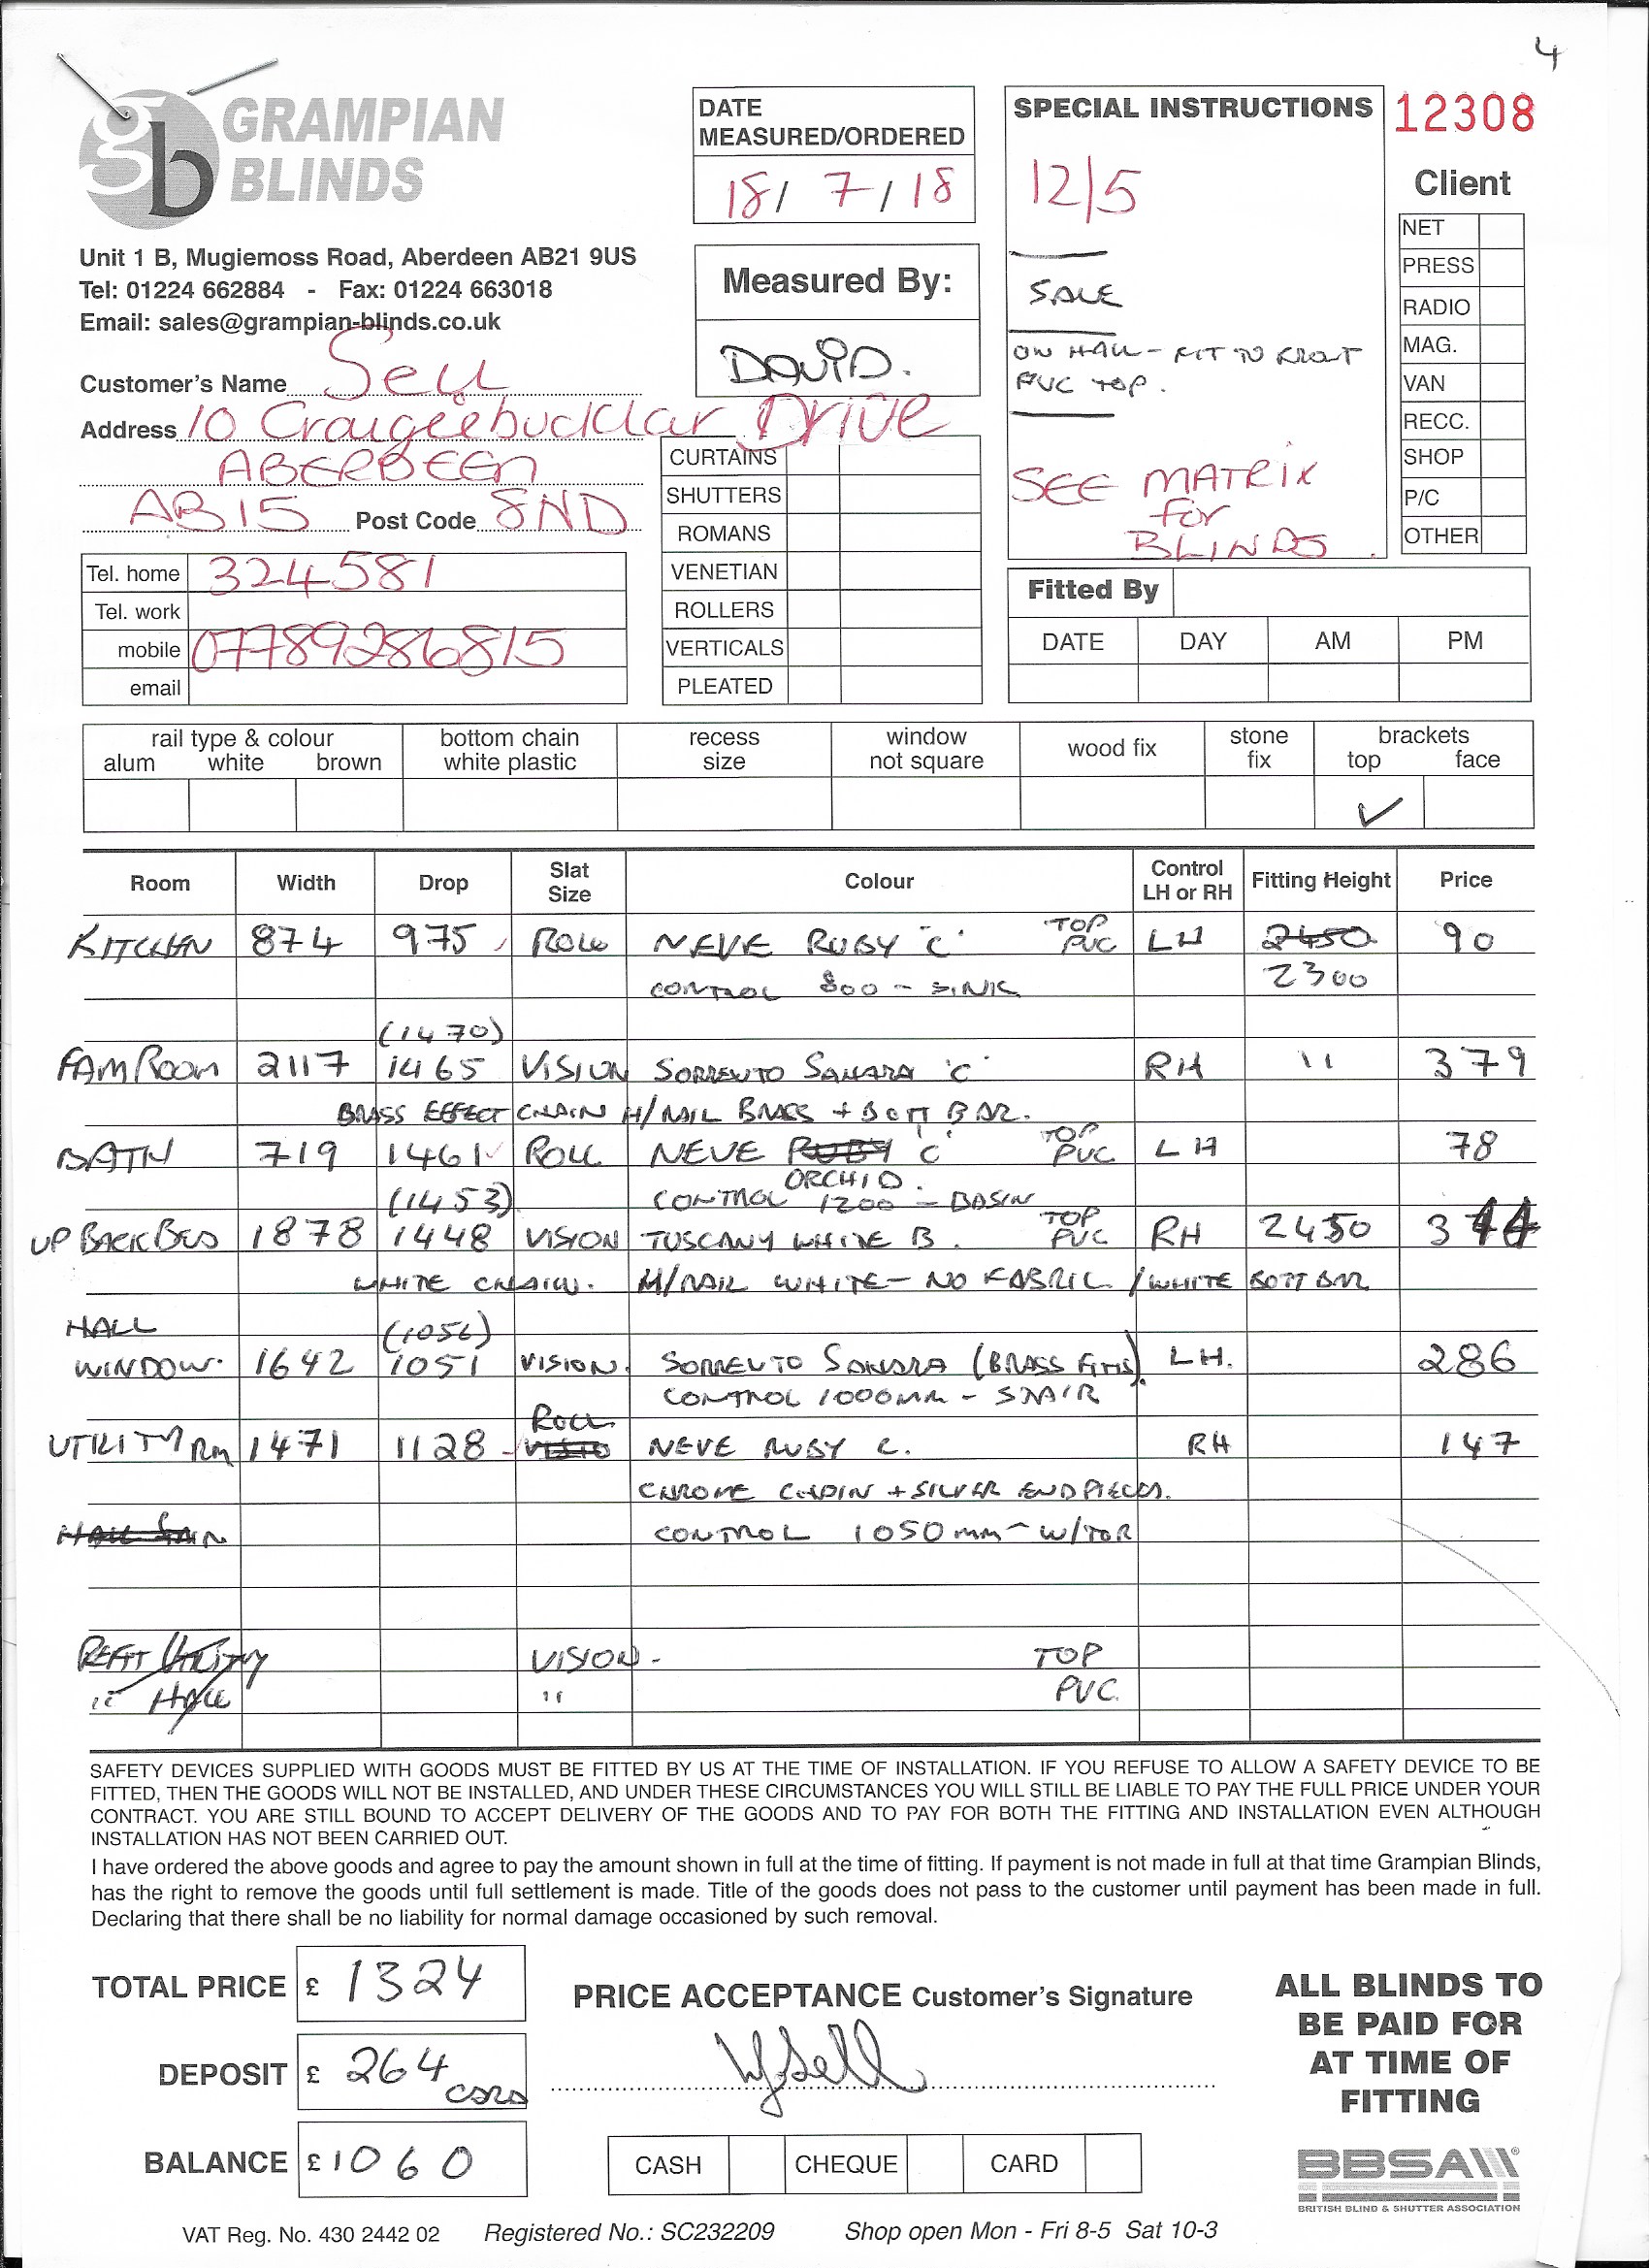 4
GRAMPIAN
BLINDS
gb
Unit 1 B, Mugiemoss Road, Aberdeen AB21 9US
Tel: 01224 662884 - Fax: 01224 663018
Email: sales@grampian-blinds.co.uk
DATE
MEASURED/ORDERED
18/ 7 / 18
Measured By:
DAVID.
SPECIAL INSTRUCTIONS
12/5
SALE
ON HALL - FIT TO FRONT
PVC TOP.
SEE MATRIX
for
BLINDS.
12308
Client
NET
PRESS
RADIO
MAG.
VAN
RECC.
SHOP
P/C
OTHER
Customer's Name Sell
Address 10 Craigiebuckler Drive
ABERDEEN
AB15 Post Code 8ND
Tel. home 324581
Tel. work
mobile 07789286815
email
CURTAINS
SHUTTERS
ROMANS
VENETIAN
ROLLERS
VERTICALS
PLEATED
Fitted By
DATE DAY AM PM
rail type & colour bottom chain recess window wood fix stone brackets
alum white brown white plastic size not square fix top face
✓
Room Width Drop Slat Size Colour Control LH or RH Fitting Height Price
KITCHEN 874 975 ROLL NEVE RUBY 'C' TOP PVC LH 2450 90
CONTROL 800 - SINK 2300
(1470)
FAM ROOM 2117 1465 VISION SORRENTO SAHARA 'C' RH " 379
BRASS EFFECT CHAIN H/RAIL BRASS + BOTT BAR.
BATH 719 1461 ROLL NEVE RUBY 'C' TOP PVC LH 78
ORCHID.
(1453) CONTROL 1200 - BASIN
UP BACK BED 1878 1448 VISION TUSCANY WHITE B. TOP PVC RH 2450 344
WHITE CHAIN. H/RAIL WHITE - NO FABRIC / WHITE BOTT BAR
HALL (1056)
WINDOW. 1642 1051 VISION. SORRENTO SAHARA (BRASS FITTS). LH. 286
CONTROL 1000mm - STAIR
ROLL
UTILITY Rm 1471 1128 NEVE RUBY C. RH 147
CHROME CHAIN + SILVER END PIECES.
CONTROL 1050mm - W/TOP
REFIT UTILITY VISION - TOP
" HALL " PVC.
SAFETY DEVICES SUPPLIED WITH GOODS MUST BE FITTED BY US AT THE TIME OF INSTALLATION. IF YOU REFUSE TO ALLOW A SAFETY DEVICE TO BE
FITTED, THEN THE GOODS WILL NOT BE INSTALLED, AND UNDER THESE CIRCUMSTANCES YOU WILL STILL BE LIABLE TO PAY THE FULL PRICE UNDER YOUR
CONTRACT. YOU ARE STILL BOUND TO ACCEPT DELIVERY OF THE GOODS AND TO PAY FOR BOTH THE FITTING AND INSTALLATION EVEN ALTHOUGH
INSTALLATION HAS NOT BEEN CARRIED OUT.
I have ordered the above goods and agree to pay the amount shown in full at the time of fitting. If payment is not made in full at that time Grampian Blinds,
has the right to remove the goods until full settlement is made. Title of the goods does not pass to the customer until payment has been made in full.
Declaring that there shall be no liability for normal damage occasioned by such removal.
TOTAL PRICE £ 1324
DEPOSIT £ 264 CARD
BALANCE £ 1060
PRICE ACCEPTANCE Customer's Signature
Sell
CASH CHEQUE CARD
ALL BLINDS TO
BE PAID FOR
AT TIME OF
FITTING
BBSA
BRITISH BLIND & SHUTTER ASSOCIATION
VAT Reg. No. 430 2442 02 Registered No.: SC232209 Shop open Mon - Fri 8-5 Sat 10-3